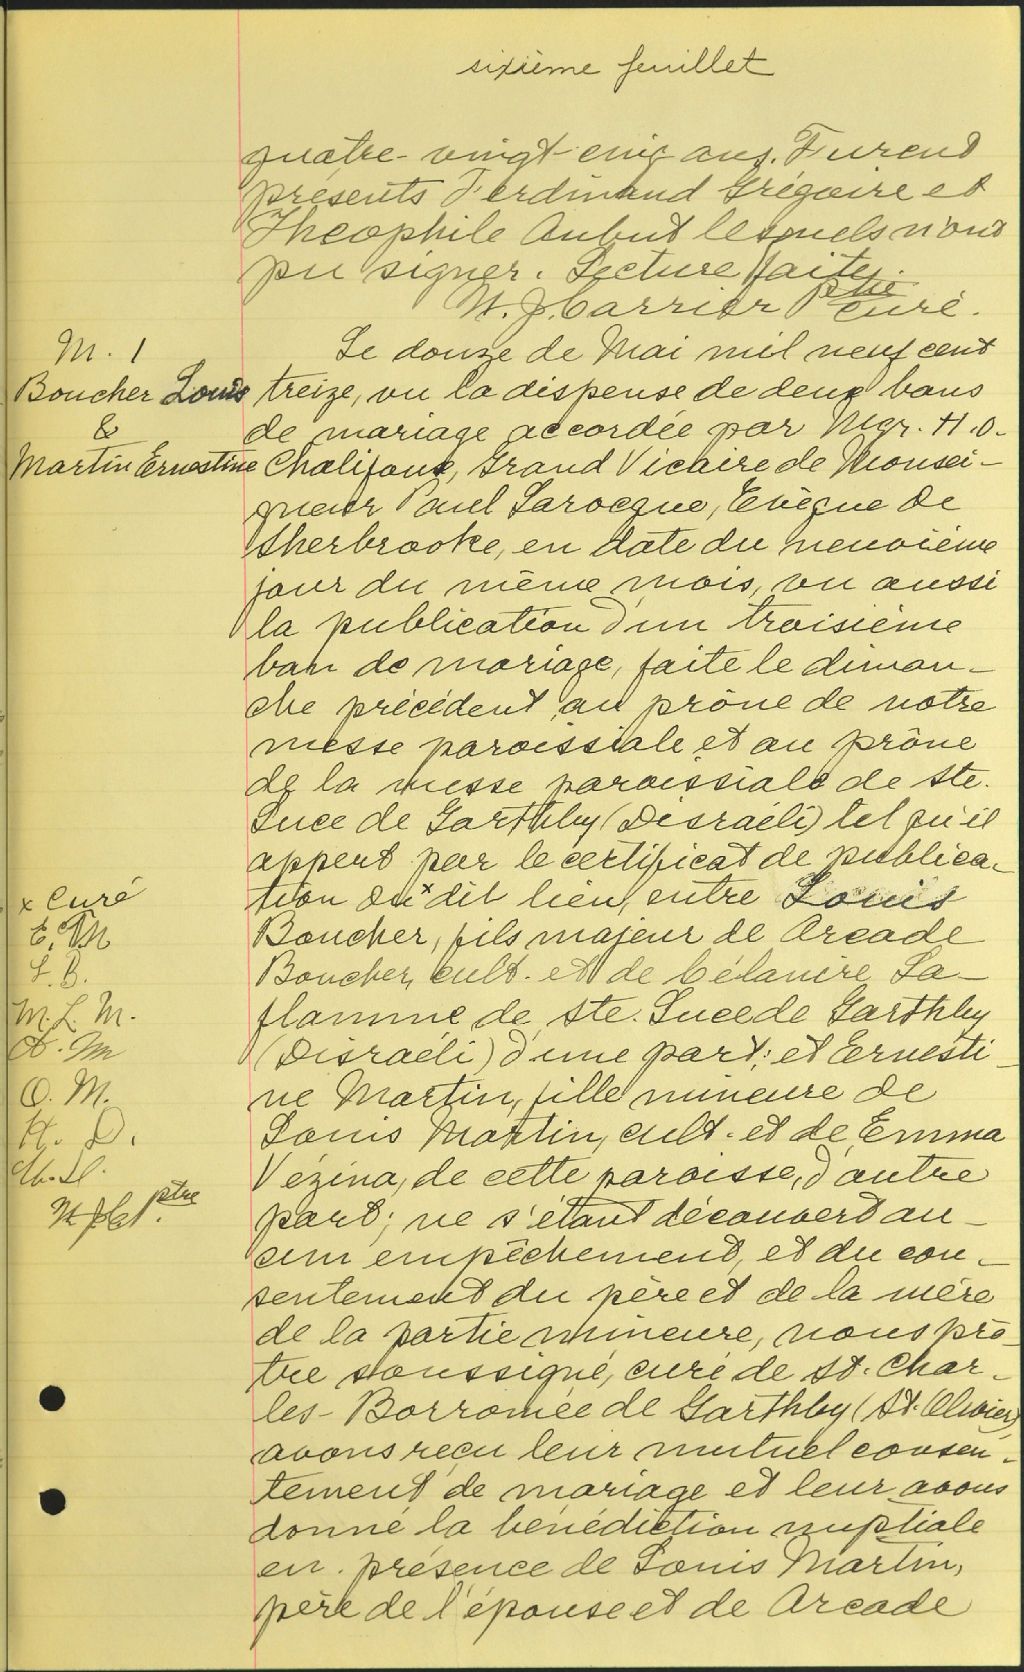 sixième feuillet
quatre-vingt-cinq ans. Furent
présents Ferdinand Grégoire et
Théophile Aubut lesquels n'ont
pu signer. Lecture faite.
N. J. Carrier ptre
curé.
M. 1
Boucher Louis
&
Martin Ernestine
Le douze de Mai mil neuf cent
treize, vu la dispense de deux bans
de mariage accordée par Mgr. H. O.
Chalifoux, Grand Vicaire de Monsei-
gneur Paul Larocque, Evêque de
Sherbrooke, en date du neuvième
jour du même mois, vu aussi
la publication d'un troisième
ban de mariage, faite le diman-
che précédent au prône de notre
messe paroissiale et au prône
de la messe paroissiale de Ste.
Luce de Garthby (Disraéli) tel qu'il
appert par le certificat de publica-
tion du x dit lieu, entre Louis
Boucher, fils majeur de Arcade
Boucher, cult. et de Célanire La-
flamme de Ste. Luce de Garthby
(Disraéli) d'une part; et Ernesti-
ne Martin, fille mineure de
Louis Martin, cult. et de Emma
Vézina, de cette paroisse, d'autre
part; ne s'étant découvert au-
cun empêchement, et du con-
sentement du père et de la mère
de la partie mineure, nous prê-
tre soussigné, curé de St. Char-
les-Borromée de Garthby (St. Olivier)
avons reçu leur mutuel consen-
tement de mariage et leur avons
donné la bénédiction nuptiale
en présence de Louis Martin,
père de l'épouse et de Arcade
x Curé
E. M
L. B.
M. L. M.
A. M
O. M.
H. D.
ptre